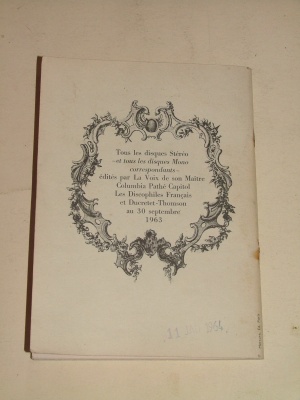 Tous les disques Stéréo
-et tous les disques Mono
correspondants-
édités par La Voix de son Maître
Columbia Pathé Capitol
Les Discophiles Français
et Ducretet-Thomson
au 30 septembre
1963